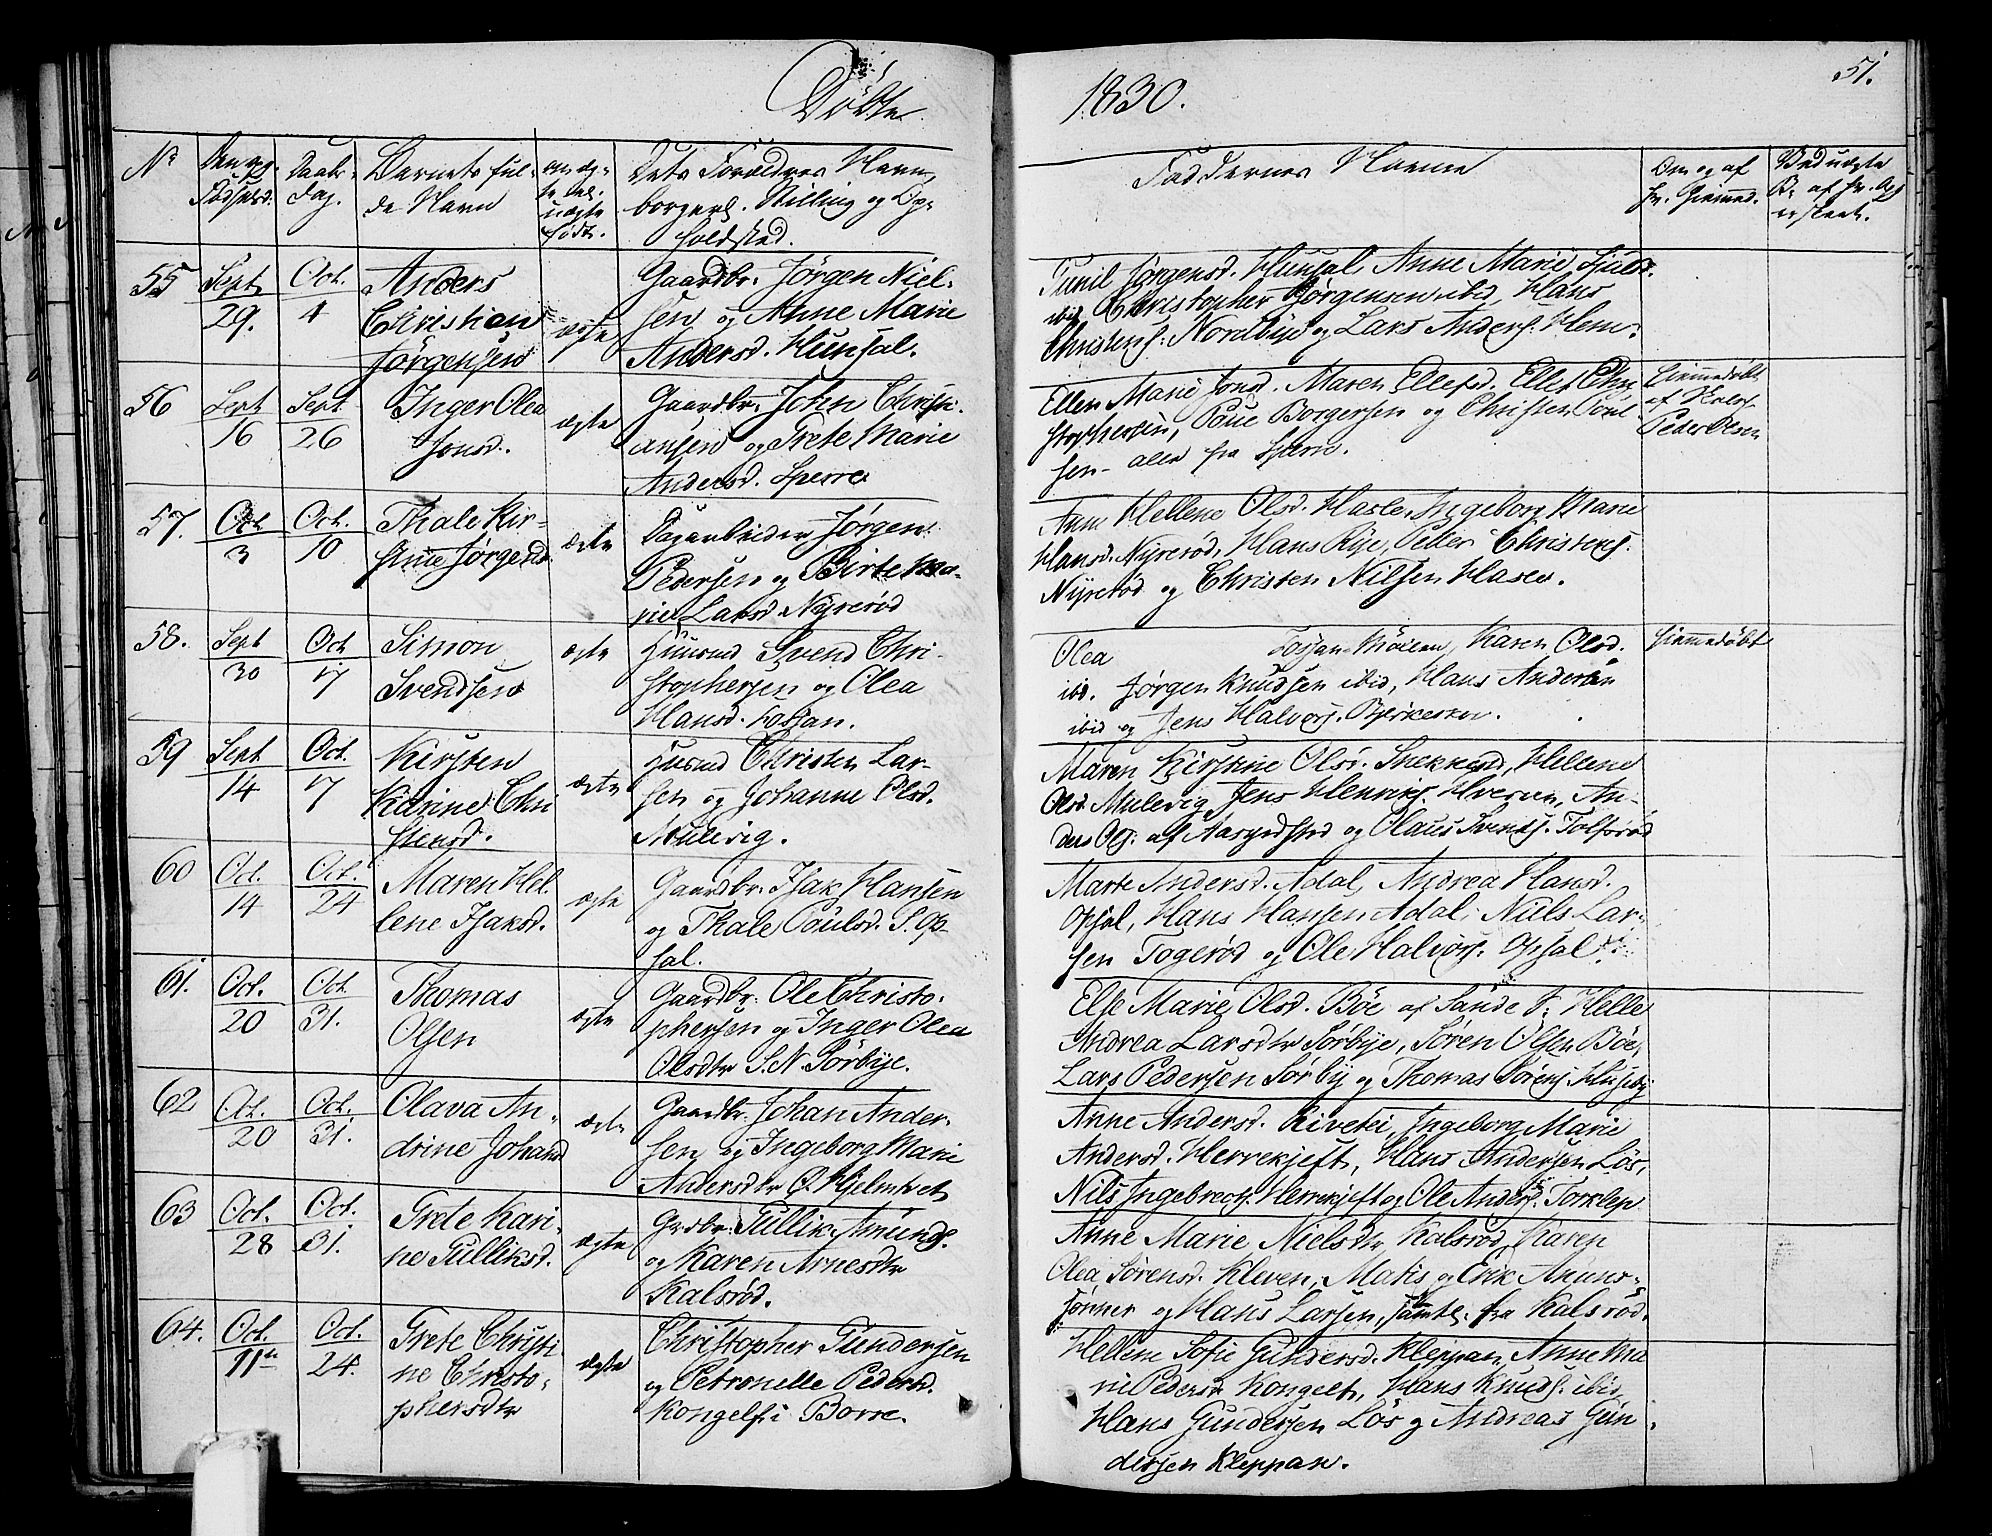 Döbte
1830.
51.
No
Daabs-
Dag.
Barnets ful-
de Navn
om æg-
te el.
uægte
født.
Dets Forældres Navn,
borgerl. Stilling og Op-
holdsted.
Faddernes Navne
Om og af
hv. hiemmed.
55
Sept
29.
Oct.
4
Anders
Christian
Jørgensen
ægte
Gaardbr. Jørgen Niel-
sen og Anne Marie
Andersd. Hunsal.
Jørgensd. Hunsal, Anne Marie
Christopher Jørgensen ibid, Hans
Christens. Nordbye og Lars Anders. Hem-
56
Sept
16
Sept
26
Inger Olea
Jonsd.
ægte
Gaardbr. John Christi-
ansen og Grete Marie
Andersd. Sperre
Ellen Marie Jonsd. Maren Ellefsd. Ellef Chri
stophersen, Poue Borgersen og Christen Poul
sen - alle fra Sperre.
hiemmedøbt
af
Peder Olsen
57.
Oct
3
Oct.
10
Thale Kir-
stine Jørgensd.
ægte
Dagarbeider Jørgen
Pedersen og Birte Ma-
rie Larsd. Nyrerød
Anne Hellene Olsd. Hasle, Ingeborg Marie
Hansd. Nyrerød, Hans Rye, Peder Christens.
Nyrerød og Christen Nilsen Hasle.
58.
Sept
30
Oct
17
Simon
Svendsen
ægte
Huusmd Svend Chri-
stophersen og Olea
Hansd. Fosjan.
Olea Fosjan Karen Olsd.
ibd. Jørgen Knudsen ibid, Hans Andersen
ibid og Jens Halvors. Bjerkeskov.
hiemmedøbt
59
Sept
14
Oct.
17
Kirsten
Karine Chri
stensd.
ægte
Husmd Christen Lar-
sen og Johanne Olsd.
Mulevig.
Maren Kirstine Olsd. Hellene
Olsd. Mulevig, Jens Henriks. An-
ders Ols. af Aasgrdstrd og Olaus Svends. Tolfsrød
60
Oct.
14
Oct.
24
Maren Hel
lene Isaksd.
ægte
Gaardbr. Isak Hansen
og Thale Poulsd. S. Op-
sal.
Marte Andersd. Adal, Andrea Hansd.
Opsal, Hans Hansen Adal, Niels Lar-
sen Togerød og Ole Halvors. Opsal.
61.
Oct.
20
Oct.
31.
Thomas
Olsen
ægte
Gaardbr. Ole Christo-
phersen og Inger Olea
Olsdtr S. N. Sørbye.
Else Marie Olsd. Böe af Sande P. Helle
Andrea Larsdtr Sørbye, Søren Olsen Böe,
Lars Pedersen Sørby og Thomas Sørens. Huseby
62
Oct.
20
Oct.
31.
Olava An-
drine Johansd
ægte
Gaardbr. Johan Ander-
sen og Ingeborg Marie
Andersdtr Ø. Hjelmtvet
Anne Andersd. Rivetei, Ingeborg Marie
Andersd. Herrekjeft, Hans Andersen Lös,
Nils Ingebrects. Herrekjeft og Ole Anders. Torklep
63
Oct.
28
Oct.
31.
Grete Kari-
ne Gulliksd.
ægte
Grdbr. Gullik Amunds.
og Karen Arnesdtr
Kalsrød.
Anne Marie Nielsdtr, Kalsrød, Karen
Olea Sørensd. Kleven, Matis og Erik Amuns-
sønner og Hans Larsen, samtl. fra Kalsrød.
64.
Oct.
11te
Oct.
24.
Grete Christi
ne Christo-
phersdtr
ægte
Christopher Gundersen
og Petronelle Pedersd.
Kongelf. i Borre.
Hellene Sofie Gundersd. Kleppan, Anne Ma
rie Pedersd Kongelf, Hans Knuds. ibid,
Hans Gundersen Lös og Andreas Gun
dersen Kleppan.